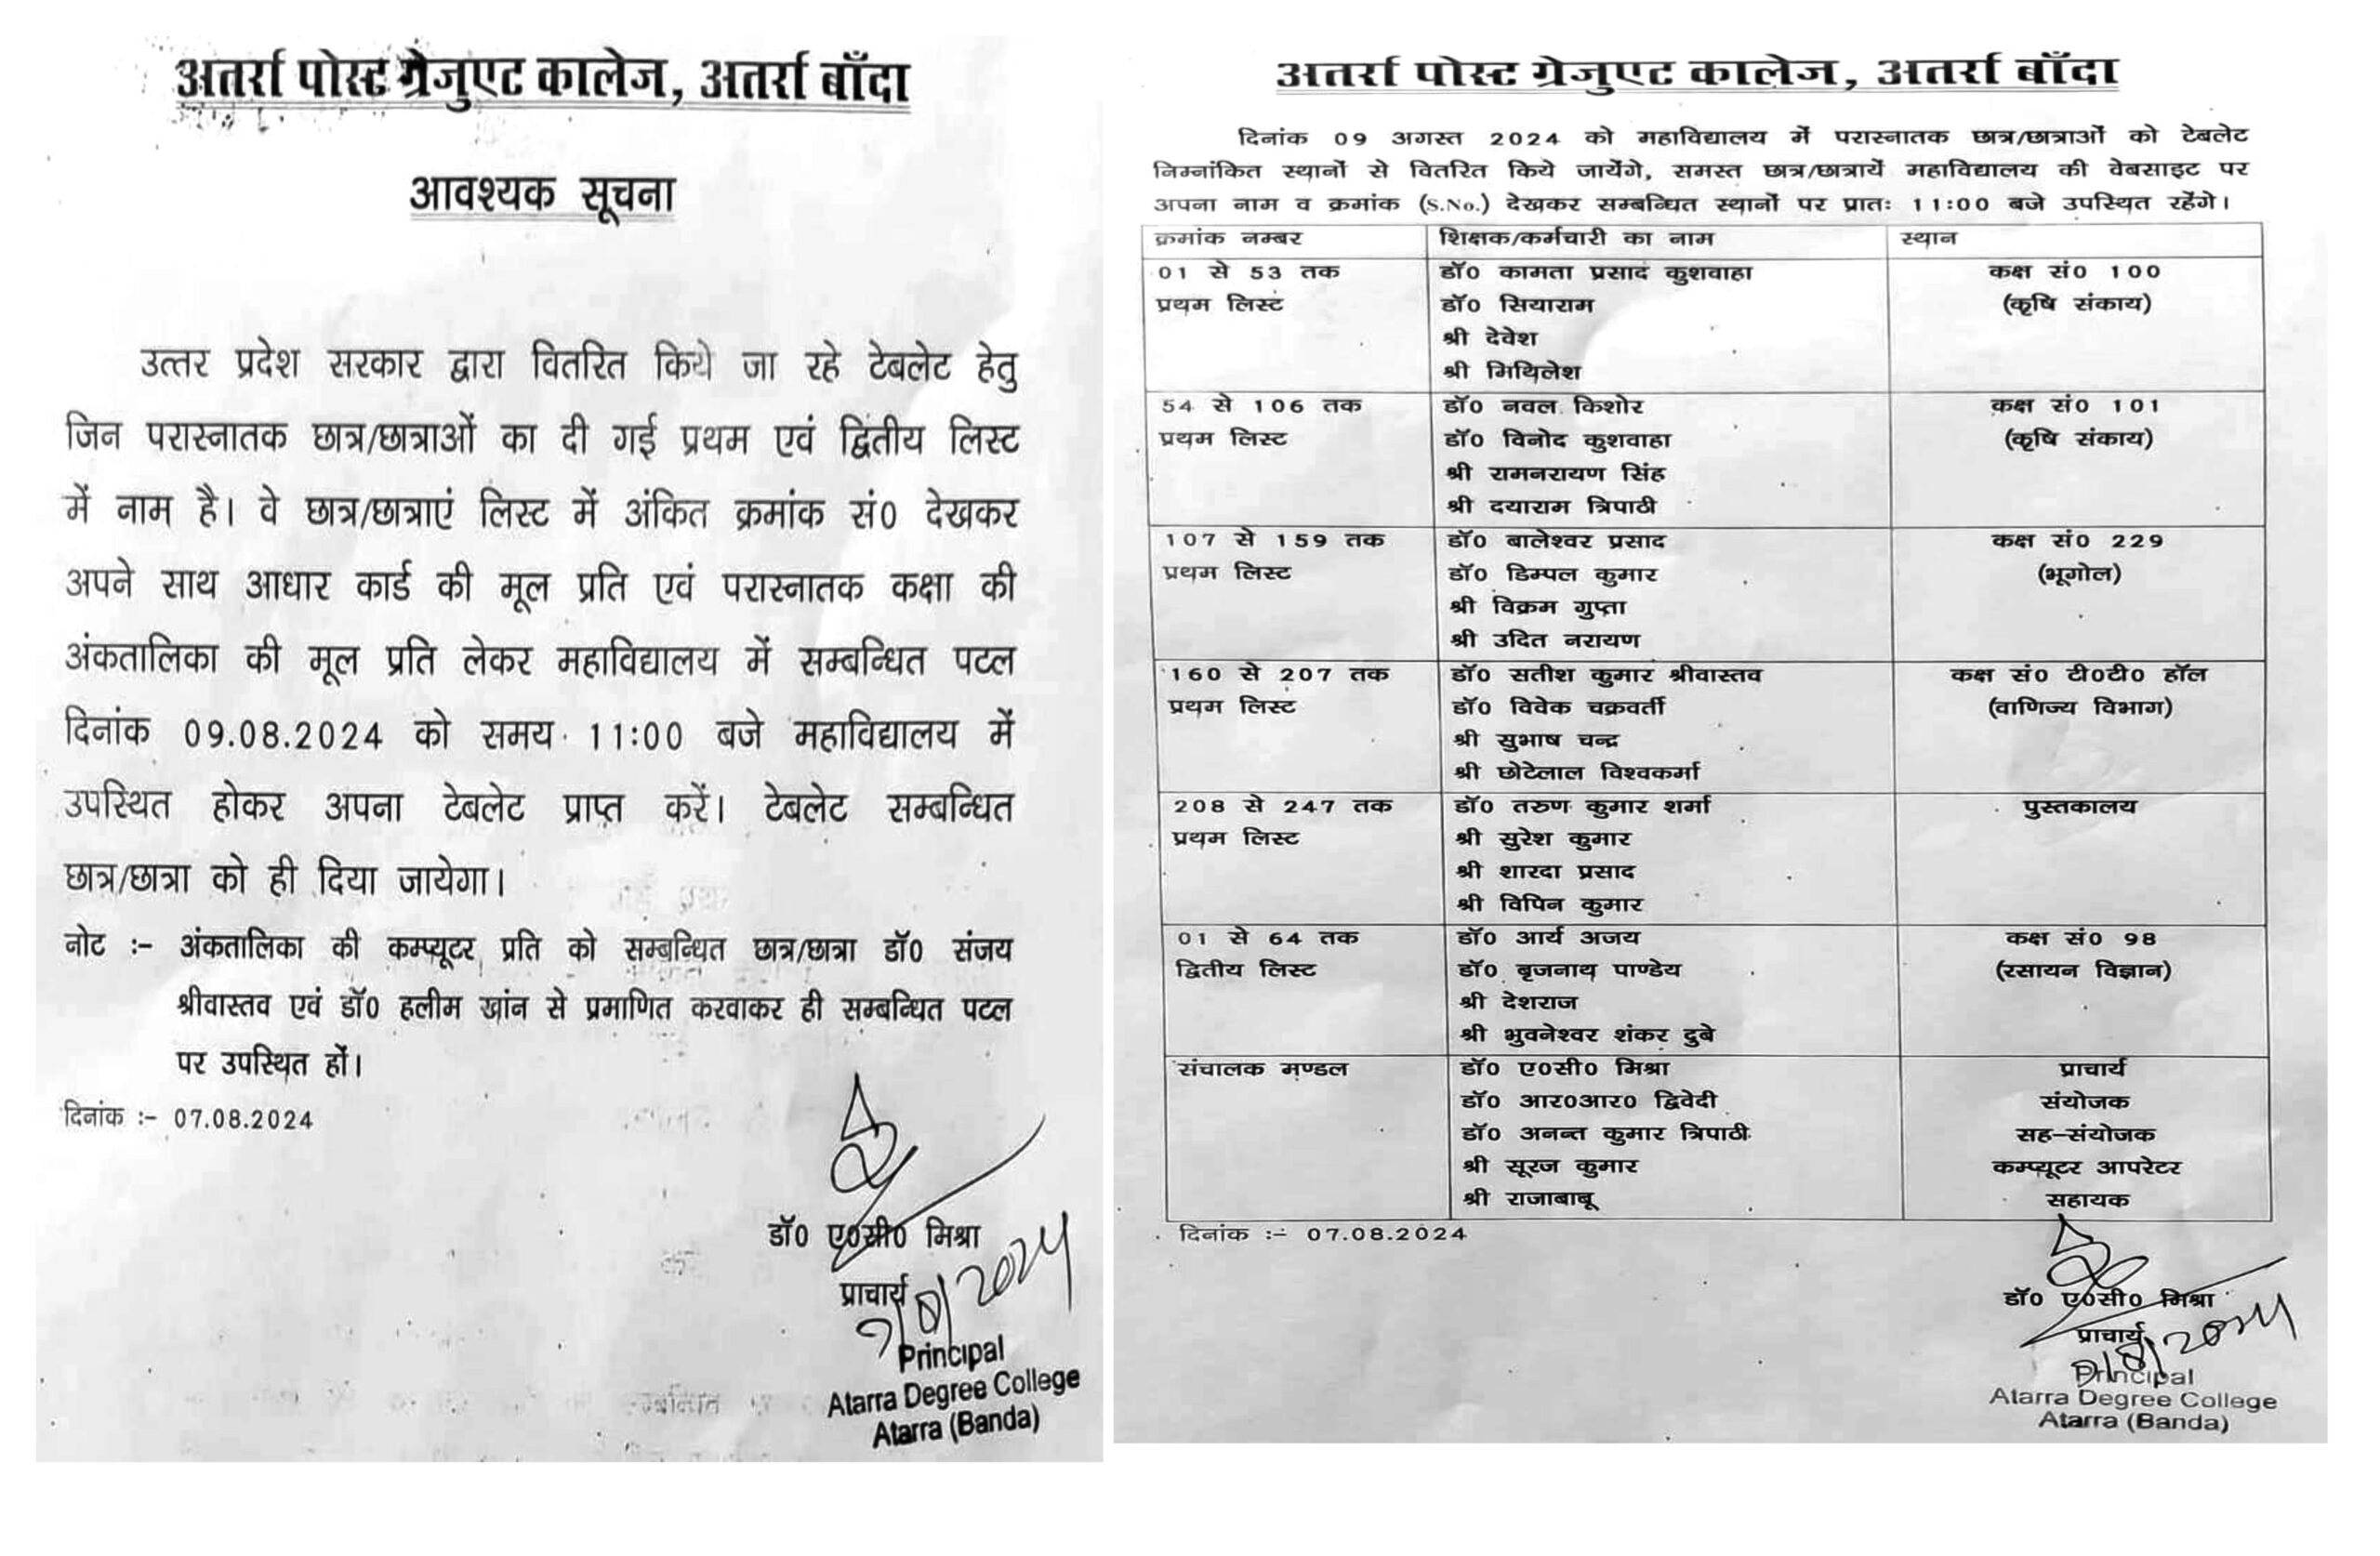 अतर्रा पोस्ट ग्रेजुएट कालेज, अतर्रा बाँदा
आवश्यक सूचना
उत्तर प्रदेश सरकार द्वारा वितरित किये जा रहे टेबलेट हेतु
जिन परास्नातक छात्र/छात्राओं का दी गई प्रथम एवं द्वितीय लिस्ट
में नाम है। वे छात्र/छात्राएं लिस्ट में अंकित क्रमांक सं0 देखकर
अपने साथ आधार कार्ड की मूल प्रति एवं परास्नातक कक्षा की
अंकतालिका की मूल प्रति लेकर महाविद्यालय में सम्बन्धित पटल
दिनांक 09.08.2024 को समय 11:00 बजे महाविद्यालय में
उपस्थित होकर अपना टेबलेट प्राप्त करें। टेबलेट सम्बन्धित
छात्र/छात्रा को ही दिया जायेगा।
नोट :- अंकतालिका की कम्प्यूटर प्रति को सम्बन्धित छात्र/छात्रा डॉ0 संजय
श्रीवास्तव एवं डॉ0 हलीम खांन से प्रमाणित करवाकर ही सम्बन्धित पटल
पर उपस्थित हों।
दिनांक :- 07.08.2024
डॉ0 ए0सी0 मिश्रा
प्राचार्य
7/8/2024
Principal
Atarra Degree College
Atarra (Banda)
अतर्रा पोस्ट ग्रेजुएट कालेज, अतर्रा बाँदा
दिनांक 09 अगस्त 2024 को महाविद्यालय में परास्नातक छात्र/छात्राओं को टेबलेट
निम्नांकित स्थानों से वितरित किये जायेंगे, समस्त छात्र/छात्रायें महाविद्यालय की वेबसाइट पर
अपना नाम व क्रमांक (S.No.) देखकर सम्बन्धित स्थानों पर प्रातः 11:00 बजे उपस्थित रहेंगे।
क्रमांक नम्बर शिक्षक/कर्मचारी का नाम स्थान
01 से 53 तक डॉ0 कामता प्रसाद कुशवाहा कक्ष सं0 100
प्रथम लिस्ट डॉ0 सियाराम (कृषि संकाय)
श्री देवेश
श्री मिथिलेश
54 से 106 तक डॉ0 नवल किशोर कक्ष सं0 101
प्रथम लिस्ट डॉ0 विनोद कुशवाहा (कृषि संकाय)
श्री रामनरायण सिंह
श्री दयाराम त्रिपाठी
107 से 159 तक डॉ0 बालेश्वर प्रसाद कक्ष सं0 229
प्रथम लिस्ट डॉ0 डिम्पल कुमार (भूगोल)
श्री विक्रम गुप्ता
श्री उदित नरायण
160 से 207 तक डॉ0 सतीश कुमार श्रीवास्तव कक्ष सं0 टी0टी0 हॉल
प्रथम लिस्ट डॉ0 विवेक चक्रवर्ती (वाणिज्य विभाग)
श्री सुभाष चन्द्र
श्री छोटेलाल विश्वकर्मा
208 से 247 तक डॉ0 तरुण कुमार शर्मा पुस्तकालय
प्रथम लिस्ट श्री सुरेश कुमार
श्री शारदा प्रसाद
श्री विपिन कुमार
01 से 64 तक डॉ0 आर्य अजय कक्ष सं0 98
द्वितीय लिस्ट डॉ0 बृजनाथ पाण्डेय (रसायन विज्ञान)
श्री देशराज
श्री भुवनेश्वर शंकर दुबे
संचालक मण्डल डॉ0 ए0सी0 मिश्रा प्राचार्य
डॉ0 आर0आर0 द्विवेदी संयोजक
डॉ0 अनन्त कुमार त्रिपाठी सह-संयोजक
श्री सूरज कुमार कम्प्यूटर आपरेटर
श्री राजाबाबू सहायक
दिनांक :- 07.08.2024
डॉ0 ए0सी0 मिश्रा
प्राचार्य
7/8/2024
Principal
Atarra Degree College
Atarra (Banda)